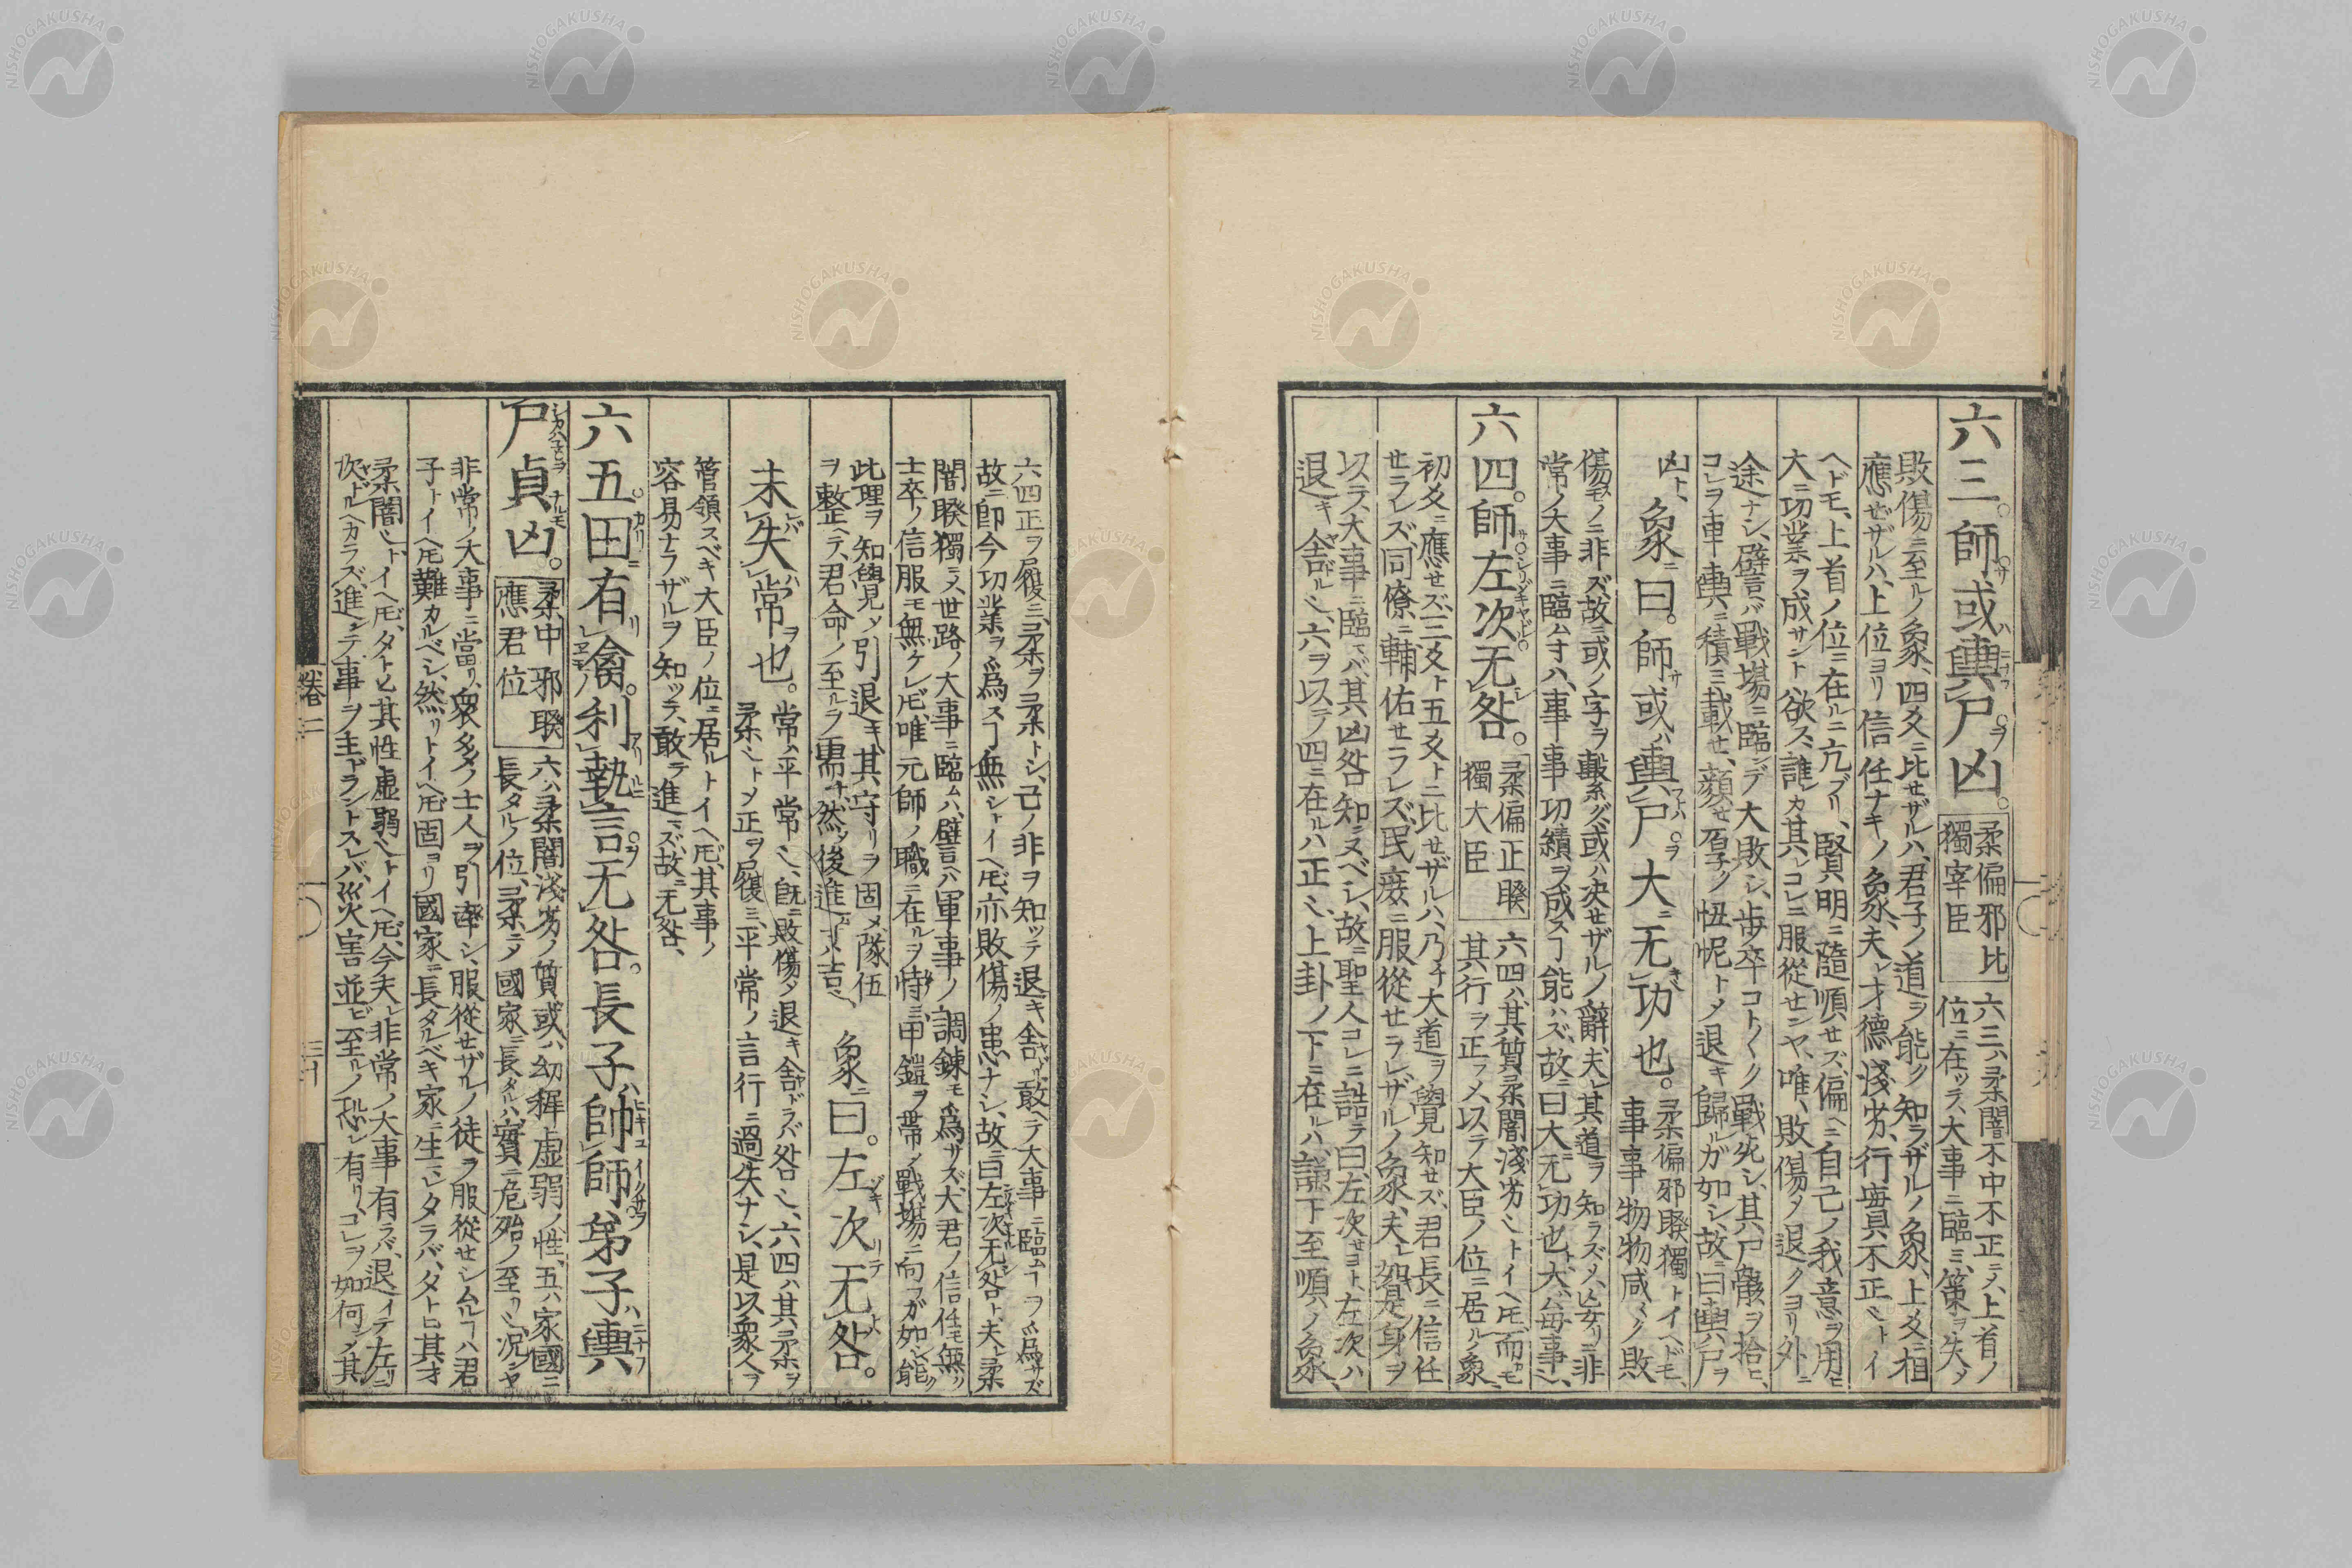 六三。師或輿尸凶。
柔偏邪比
獨宰臣
六三ハ柔闇不中不正ニメ上首ノ
位ニ在ッテ大事ニ臨ミ、策ヲ失メ
敗傷ニ至ルノ象、四爻ニ比セザルハ、君子ノ道ヲ能ク知ラザルノ象、上爻ニ相
應ゼザルハ、上位ヨリ信任ナキノ象、夫レ才德淺劣、行實不正シトイ
ヘドモ、上首ノ位ニ在ルニ亢ブリ、賢明ニ隨順セズ、偏ヘニ自己ノ我意ヲ用ヒ
大ニ功業ヲ成サント欲ス、誰カ其レコレニ服從センヤ、唯、敗傷メ退クヨリ外ニ
途ナシ、譬ヘバ戰場ニ臨ンデ大敗シ、歩卒コト〳〵ク戰死シ、其尸骸ヲ拾ヒ、
コレヲ車輿ニ積ミ載セ、顏セ厚ク忸怩トメ退キ歸ルガ如シ、故ニ曰輿尸ヲ
凶ト、
象曰。師或輿尸大无功也。
柔偏邪睽獨トイヘドモ、
事事物物咸ク敗
傷スルノミニ非ズ、故ニ或ノ字ヲ繫グ、或ハ決セザルノ辭、夫レ其道ヲ知ラズメ、妄リニ非
常ノ大事ニ臨ムトキハ、事事功績ヲ成スヿ能ハズ、故ニ曰大无功也ト、大ハ毎事シ、
六四。師左次无咎。
柔偏正睽
獨大臣
六四ハ其質柔闇淺劣シトイヘ𪜈、而モ
其行ヲ正フメ、以テ大臣ノ位ニ居ルノ象、
初爻ニ應セズ、三爻ト五爻トニ比セザルハ、乃チ大道ヲ覺知セズ、君長ニ信任
セラレズ、同僚ニ輔佑セラレズ、民庶ニ服從セラレザルノ象、夫レ如是ノ身ヲ
以テ、大事ニ臨マバ其凶咎知ンヌベシ、故ニ聖人コレニ誥テ曰、左次セヨト、左次ハ
退キ舍ドルシ、六ヲ以テ四ニ在ルハ正シ、上卦ノ下ニ在ルハ、謙下至順ノ象、
六四正ヲ履ミ、柔ヲ柔トシ、己ノ非ヲ知ッテ退キ舍リ、敢ヘテ大事ニ臨ムヿヲ爲サズ
故ニ卽今功業ヲ爲スヿ無シトイヘ𪜈、亦敗傷ノ患ナシ、故ニ曰左次无咎ト、夫レ柔
闇睽獨ニメ世路ノ大事ニ臨ムハ、譬ヘバ軍事ノ調錬モ爲サズ、大君ノ信任モ無ク
士卒ノ信服モ無ケレ𪜈、唯元師ノ職ニ在ルヲ恃ミ、甲鎧ヲ帶メ戰場ニ向フガ如シ、能ク
此理ヲ知覺メ引退キ、其守リヲ固メ、隊伍
ヲ整ヘテ、君命ノ至ルヲ需チ、然メ後進ム寸ハ吉シ、
象曰。左次无咎。
未失常也。
常ハ平常シ、旣ニ敗傷メ退キ舍ドラバ咎シ、六四ハ其柔ヲ
柔シトメ正ヲ履ミ、平常ノ言行ニ過失ナシ、是以衆人ヲ
管領スベキ大臣ノ位ニ居ルトイヘ𪜈、其事ノ
容易ナラザルヲ知ッテ、敢テ進マズ、故ニ无咎、
六五。田有禽。利執言无咎。長子帥師、弟子輿
尸貞凶。
柔中邪睽
應君位
六ハ柔闇淺劣ノ質、或ハ幼穉虛弱ノ性、五ハ家國ニ
長タルノ位、柔ニメ國家ニ長タルハ、實ニ危殆ノ至リシ、況ンヤ
非常ノ大事ニ當リ、衆多ノ士人ヲ引率シ、服從セザルノ徒ヲ服從セシムルヿハ君
子トイヘ𪜈難カルベシ、然リトイヘ𪜈固ヨリ國家ニ長タルベキ家ニ生レタラバ、タトヒ其才
柔闇シトイヘ𪜈、タトヒ其性虛弱シトイヘ𪜈、今夫レ非常ノ大事有ラバ、退イテ左リニ
次ドルベカラズ、進ンデ事ヲ主ドラントスレバ、災害並ビ至ルノ恐レ有リ、コレヲ如何ンメ其
卷二